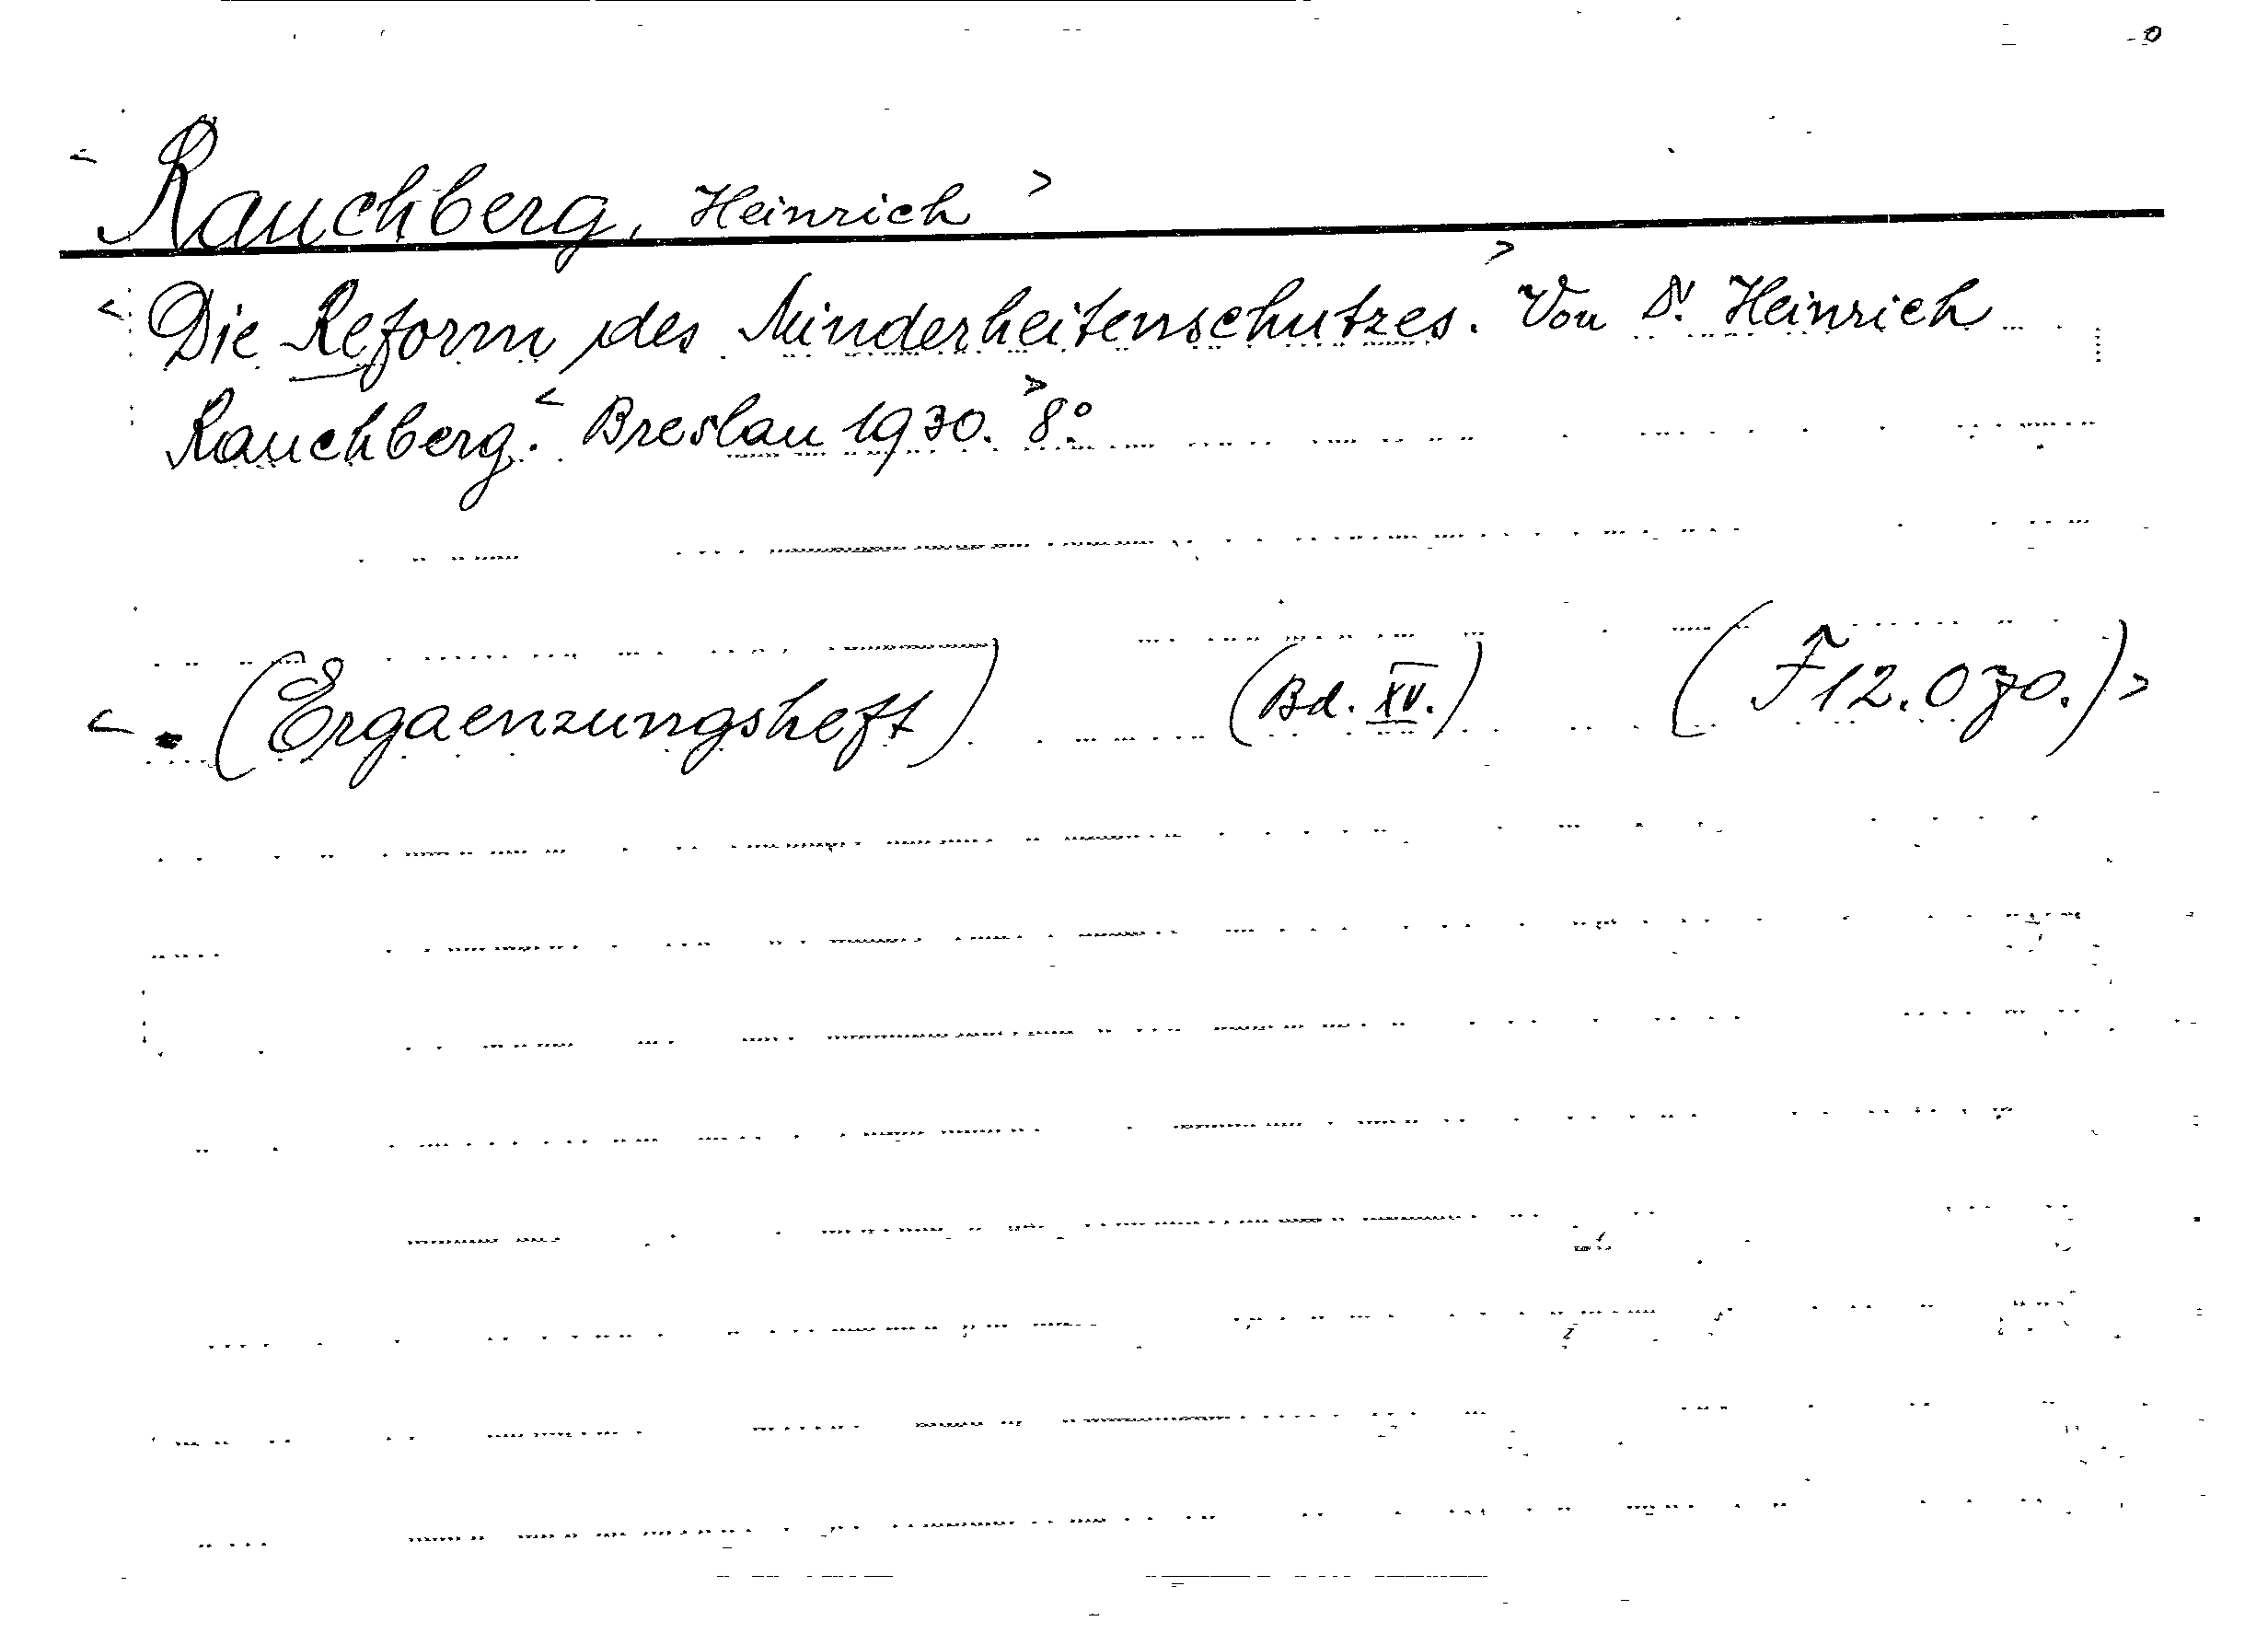 < Rauchberg, Heinrich >
< Die Reform des Minderheitenschutzes. > Von Dr. Heinrich
Rauchberg. < Breslau 1930. > 8°.
< (Ergaenzungsheft) (Bd. XV.) (F 12.070.) >